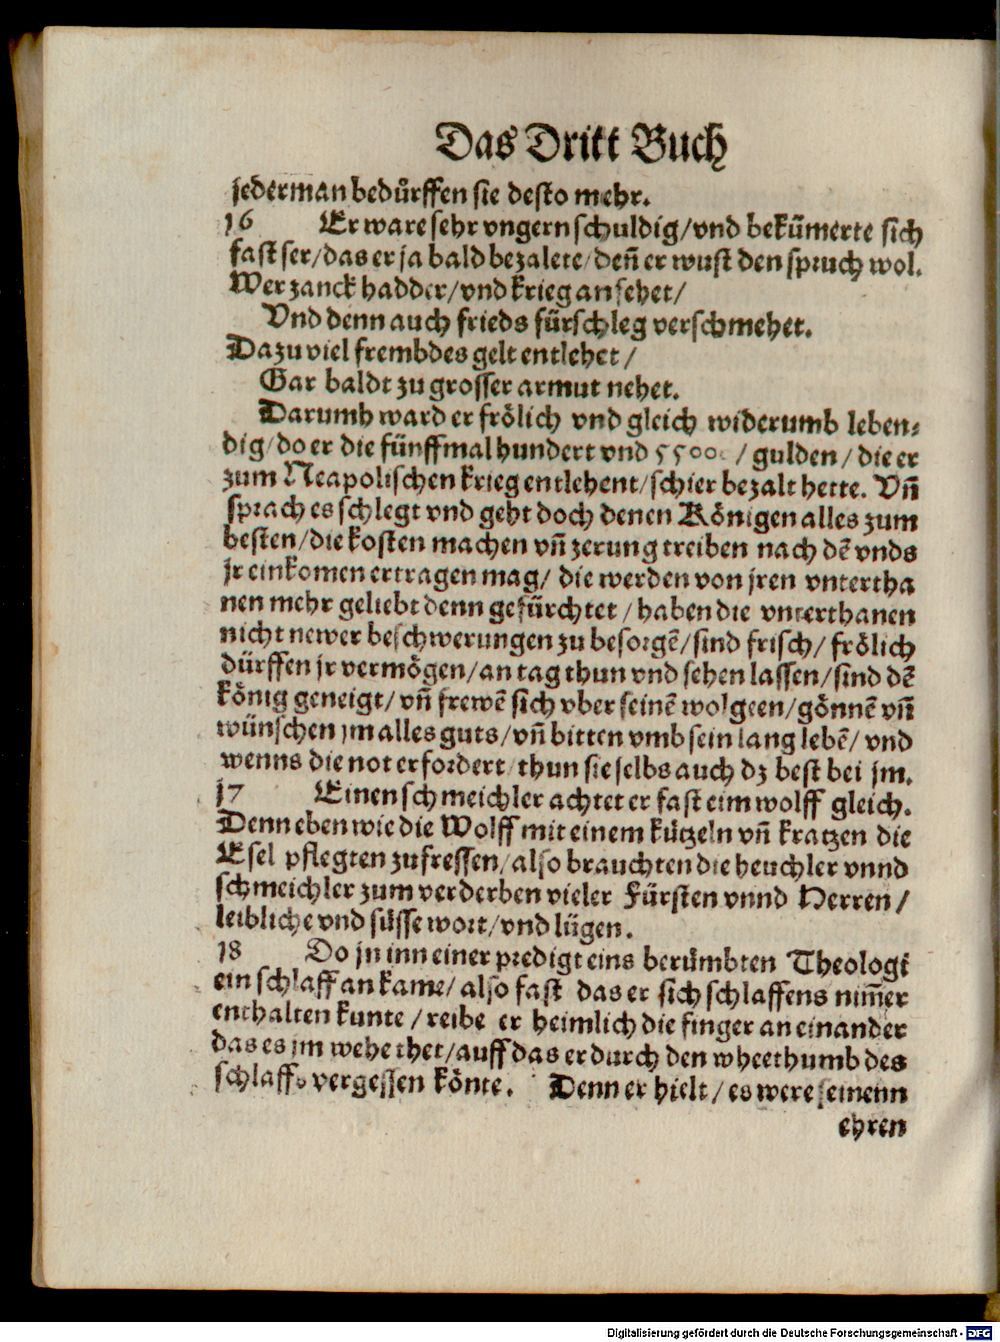 Das Dritt Buch
jederman bedůrffen sie desto mehr.
16 Er ware sehr vngern schuldig/vnd bekům̃erte sich
fast ser/das er ja bald bezalete/deñ er wust den spruch wol.
Wer zanck hadder/vnd krieg ansehet/
Vnd denn auch frieds fürschleg verschmehet.
Dazu viel frembdes gelt entlehet/
Gar baldt zu grosser armut nehet.
Darumb ward er frölich vnd gleich widerumb leben⸗
dig/do er die fünffmal hundert vnd /gulden/die er
zum Neapolischen krieg entlehent/schier bezalt hette. Vñ
sprach es schlegt vnd geht doch denen Königen alles zum
besten/die kosten machen vñ zerung treiben nach dē vnds
jr einkomen ertragen mag/ die werden von jren vntertha
nen mehr geliebt denn gefürchtet/haben die vnterthanen
nicht newer beschwerungen zu besorgē/sind frisch/frölich
dürffen jr vermögen/an tag thun vnd sehen lassen/sind dē
könig geneigt/vñ frewē sich vber seinē wolgeen/gönnē vñ
wünschen jm alles guts/vñ bitten vmb sein lang lebē/vnd
wenns die not erfordert/thun sie selbs auch dz best bei jm.
17 Einen schmeichler achtet er fast eim wolff gleich.
Denn eben wie die Wolff mit einem kützeln vñ kratzen die
Esel pflegten zufressen/also brauchten die heuchler vnnd
schmeichler zum verderben vieler Fürsten vnnd Herren/
leibliche vnd süsse wort/vnd lügen.
18 Do jn inn einer predigt eins berümbten Theologi
ein schlaff an kame/also fast das er sich schlaffens nim̃er
enthalten kunte/reibe er heimlich die finger an einander
das es jm wehe thet/auff das er durch den wheethumb des
schlaffs vergessen könte. Denn er hielt/es were seinenn
ehren
Digitalisierung gefördert durch die Deutsche Forschungsgemeinschaft - DFG